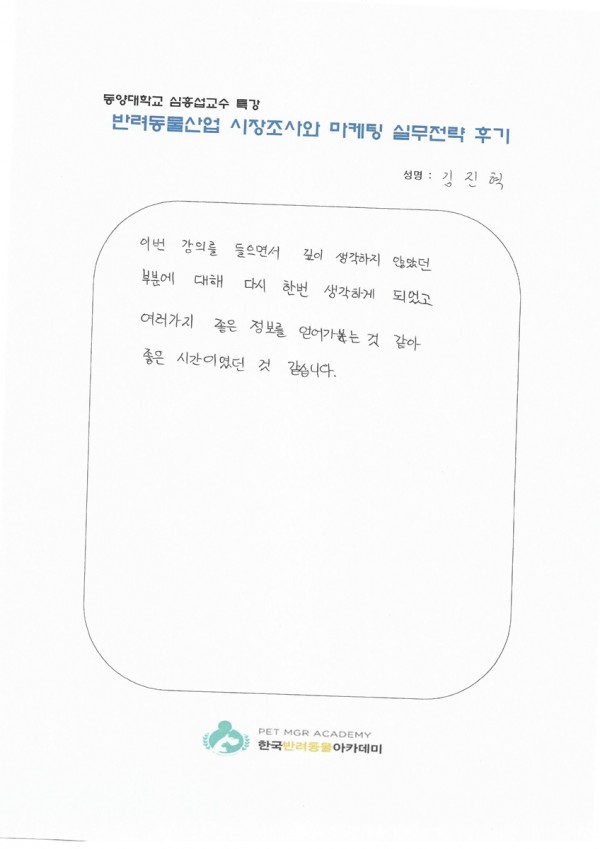 동양대학교 심홍섭교수 특강
반려동물산업 시장조사와 마케팅 실무전략 후기
성명 : 김진혁
이번 강의를 들으면서 깊이 생각하지 않았던
부분에 대해 다시 한번 생각하게 되었고
여러가지 좋은 정보를 얻어가는 것 같아
좋은 시간이였던 것 같습니다.
PET MGR ACADEMY
한국반려동물아카데미